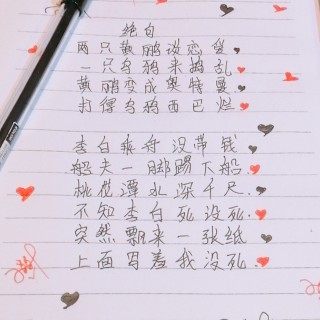 绝句
两只黄鹂谈恋爱
一只乌鸦来捣乱
黄鹂变成奥特曼
打得乌鸦西巴烂
李白乘舟没带钱
船夫一脚踢下船
桃花潭水深千尺.
不知李白死没死.
突然飘来一张纸
上面写着我没死.